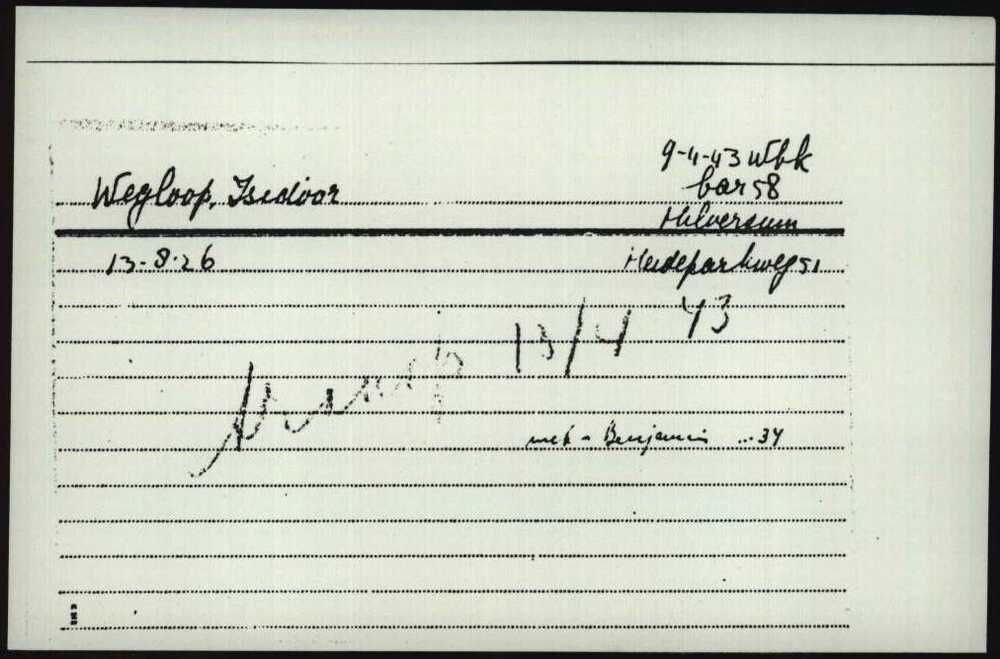 9-4-43 Wbk
Wegloop, Isidoor
bar 58
Hilversum
13-8-26
Heideparkweg 51
transp 13/4 43
met - Benjamin ...34